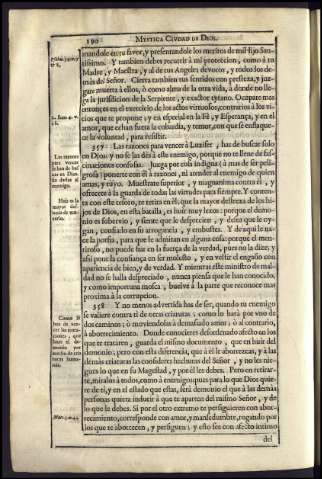 190 MYSTICA CIUDAD DE DIOS.
mandole en tu favor, y presentandole los meritos de mi Hijo San-
tissimo. Y tambien debes recurrir à mi proteccion, como à tu
Madre, y Maestra, y al de tus Angeles devotos, y todos los de-
màs del Señor. Cierra tambien tus sentidos con presteza, y juz-
gate muerta à ellos, ò como alma de la otra vida, à donde no lle-
ga la jurisdicion de la Serpiente, y exactor tyrano. Ocupate mas
entonces en el exercicio de los actos virtuosos, contrarios à los vi-
cios que te propone; y en especial en la Fè, y Esperança, y en el
amor, que echan fuera la cobardia, y temor, con que se enflaque-
ce la voluntad, para resistir.
357 Las razones para vencer à Luzifer, has de buscar solo
en Dios: y no se las dès à este enemigo, porque no te llene de fas-
cinaciones confusas. Juzga por cosa indigna, à mas de ser peli-
grosa, ponerte con èl à razones, ni atender al enemigo de quien
amas, y tuyo. Muestrate superior, y magnanima contra èl, y
ofrecete à la guarda de todas las virtudes para siempre. Y conten-
ta con este tesoro, te retira en èl; que la mayor destreza de los hi-
jos de Dios, en esta batalla, es huir muy lexos: porque el demo-
nio es sobervio, y siente que le desprecien, y desea que le oy-
gan, confiado en su arrogancia, y embustes. Y de aqui le na-
ce la porfia, para que le admitan en alguna cosa: porque el men-
tiroso, no puede fiar en la fuerça de la verdad, pues no la dize; y
assi pone la confiança en ser molesto, y en vestir el engaño con
apariencia de bien, y de verdad. Y mientras este ministro de mal-
dad no se halla despreciado, nunca piensa que le han conocido,
y como importuna mosca, buelve à la parte que reconoce mas
proxima à la corrupcion.
358 Y no menos advertida has de ser, quando tu enemigo
se valiere contra ti de otras criaturas, como lo harà por vno de
dos caminos; ò moviendolas à demasiado amor, ò al contrario,
à aborrecimiento. Donde conocieres desordenado afecto en los
que te trataren, guarda el mismo documento, que en huir del
demonio; pero con esta diferencia, que à èl le aborrezcas, y à las
demàs criaturas las consideres hechuras del Señor, y no les nie-
gues lo que en su Magestad, y por èl les debes. Pero en retirar-
te, miralos à todos, como à enemigos; pues para lo que Dios quie-
re de ti, y en el estado que estàs, serà demonio el que à las demàs
personas quiera inducir à que te aparten del mismo Señor, y de
lo que le debes. Si por el otro extremo te persiguieren con abor-
recimiento, corresponde con amor, y mansedumbre, rogando por
los que te aborrecen, y persiguen; y esto sea con afecto intimo
del
Las razones
para vencer
se han de bus-
car en Dios.
sin darlas al
enemigo.
Huir es la
mayor des-
treza de ven-
cerlo.